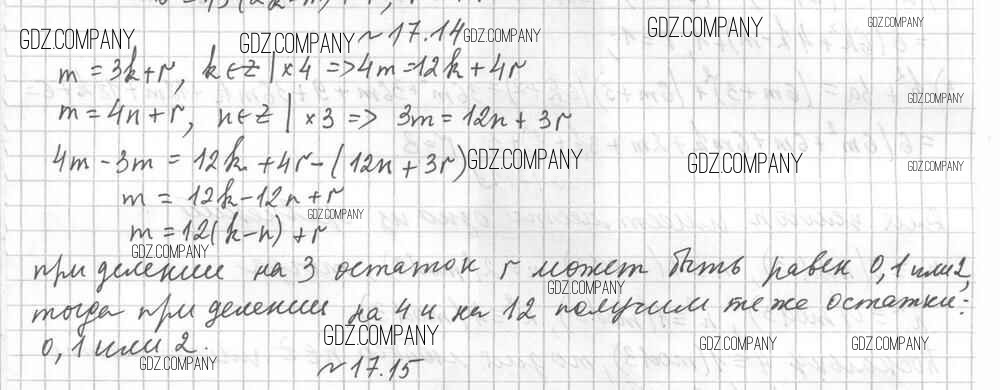 GDZ.COMPANY
GDZ.COMPANY
№ 17.14
GDZ.COMPANY
GDZ.COMPANY
GDZ.COMPANY
m = 3k+r, k∈Z | ×4 => 4m = 12k + 4r
GDZ.COMPANY
m = 4n+r, n∈Z | ×3 => 3m = 12n + 3r
4m - 3m = 12k + 4r - (12n + 3r)
GDZ.COMPANY
GDZ.COMPANY
GDZ.COMPANY
m = 12k - 12n + r
GDZ.COMPANY
m = 12(k-n) + r
GDZ.COMPANY
при делении на 3 остаток r может быть равен 0, 1 или 2,
GDZ.COMPANY
тогда при делении на 4 и на 12 получим те же остатки:
0, 1 или 2.
GDZ.COMPANY
GDZ.COMPANY
GDZ.COMPANY
GDZ.COMPANY
№ 17.15